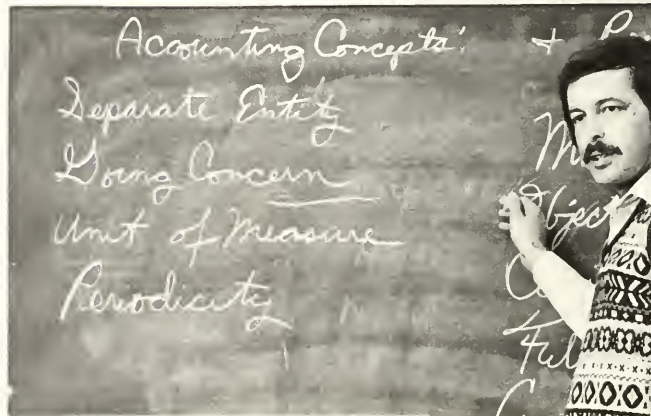 Accounting Concepts:
Separate Entity
Going Concern
Unit of Measure
Periodicity
+
Object